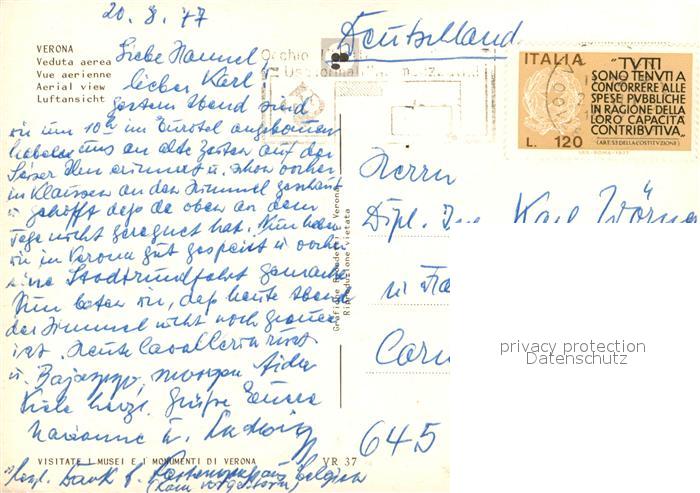 20.8.77
VERONA
Veduta aerea
Vue aerienne
Aerial view
Luftansicht
Liebe Hannel
lieber Karl!
Gestern Abend sind
wir um 10h im Eurotel angekommen
haben uns an alte Zeiten auf der
Seiser Alm erinnert u. schon vorher
in Klausen an den Himmel geschaut
u. gehofft dass da oben an dem
Tage nicht geregnet hat. Nun haben
wir in Verona gut gespeist u. vorher
eine Stadtrundfahrt gemacht
Nun beten wir, dass heute Abend
der Himmel nicht noch grauer
ist. Heute Cavalleria rust
u. Bajazzo, morgen Aida
Viele herzl. Grüße Eure
Marianne u. Ludwig
VISITATE I MUSEI E I MONUMENTI DI VERONA
VR 37
Herzl. Dank f. Kartengruß aus Belgien
(kam vorgestern)
Grafiche Verona
Riproduzione vietata
Deutschland
ITALIA
"TUTTI
SONO TENUTI A
CONCORRERE ALLE
SPESE PUBBLICHE
IN RAGIONE DELLA
LORO CAPACITÀ
CONTRIBUTIVA"
(ART. 53 DELLA COSTITUZIONE)
L. 120
Herrn
Dipl. Karl Wörner
645
privacy protection
Datenschutz